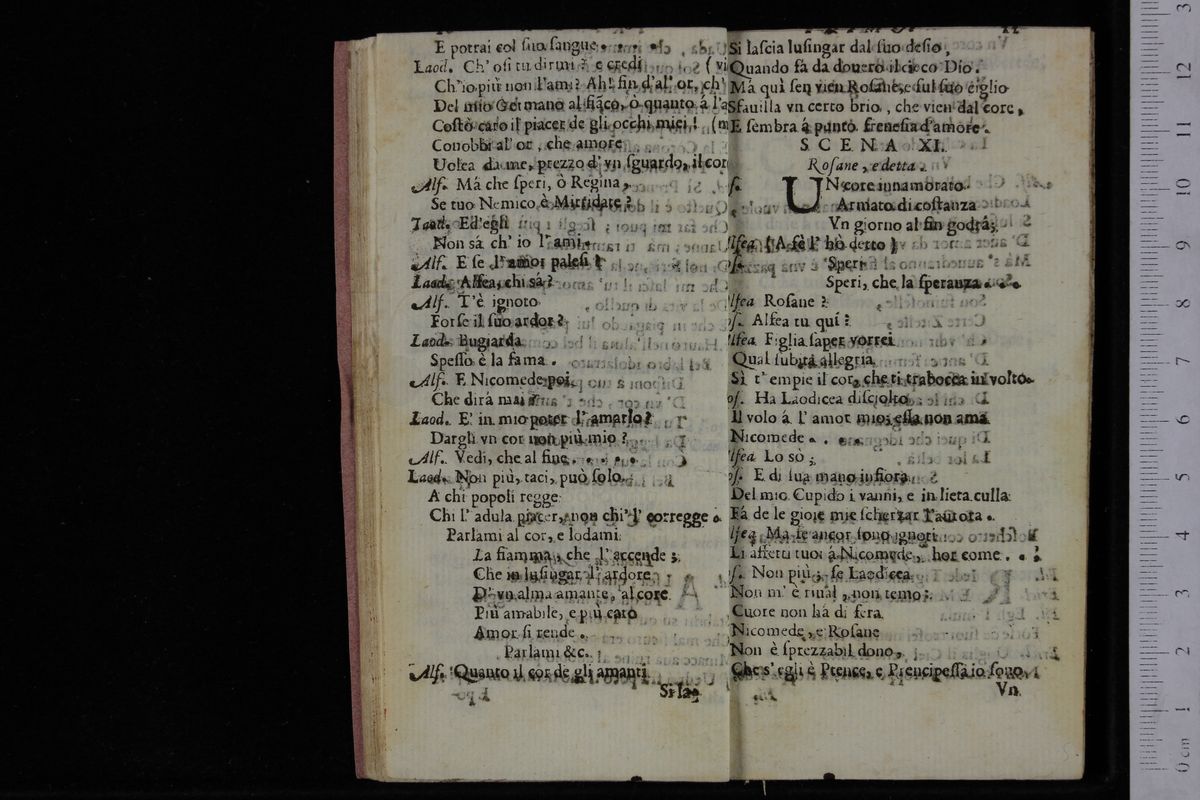 E potrai col suo sangue. . . .
Laod. Ch' osi tu dirmi? e credi (vi
Ch'io più non l'ami? Ah! sin d'al' or, ch'
Del mio Germano al fiāco, ò quanto á l'a
Costò caro il piacer de gli occhi miei! (m
Conobbi al' or, che amore
Uolea da me, prezzo d' vn sguardo, il cor
Alf. Má che speri, ò Regina,
Se tuo Nemico è Mitridate?
Laod. Ed'egli
Non sá ch' io l'ami.
Alf. E se l'amor palesi?
Laod. Alfea, chi sá?
Alf. T'è ignoto
Forse il suo ardor?
Laod. Bugiarda
Spesso è la fama.
Alf. E Nicomede poi,
Che dirá mai?
Laod. E' in mio poter l'amarlo?
Dargli vn cor non più mio?
Alf. Vedi, che al fine. . . . .
Laod. Non più, taci, può solo
A chi popoli regge
Chi l' adula piacer, non chi'l' corregge.
Parlami al cor, e lodami
La fiamma, che l'accende;
Che in lusingar l'ardore
D' vn alma amante, al core
Più amabile, e più caro
Amor si rende.
Parlami &c.
Alf. Quanto il cor de gli amanti
Si las-
PRIMO. 11
Si lascia lusingar dal suo desio,
Quando fá da douero il cieco Dio.
Má quì sen vien Rosane, e sul suo ciglio
Sfauilla vn certo brio, che vien dal core,
E sembra á punto frenesia d'amore.
SCENA XI.
Rosane, e detta.
s. UN core innamorato
Armato di costanza
Vn giorno al fin godrá;
lfea (A fè l' hò detto)
s. Speri
Speri, che la speranza. . .
lfea Rosane?
os. Alfea tu quí?
lfea Figlia saper vorrei
Qual subita allegria
Sì t' empie il cor, che ti trabocca in volto.
os. Ha Laodicea disciolto
Il volo á l' amor mio; essa non ama
Nicomede. . . .
lfea Lo sò;
os. E di sua mano infiora
Del mio Cupido i vanni, e in lieta culla
Fá de le gioie mie scherzar l'aurora.
lfea Ma se ancor sono ignoti
Li affetti tuoi á Nicomede, hor come. . ?
s. Non più; se Laodicea
Non m' è riual, non temo;
Cuore non há di fera
Nicomede, e Rosane
Non è sprezzabil dono,
Che s' egli è Prence, e Prencipessa io sono.
Vn